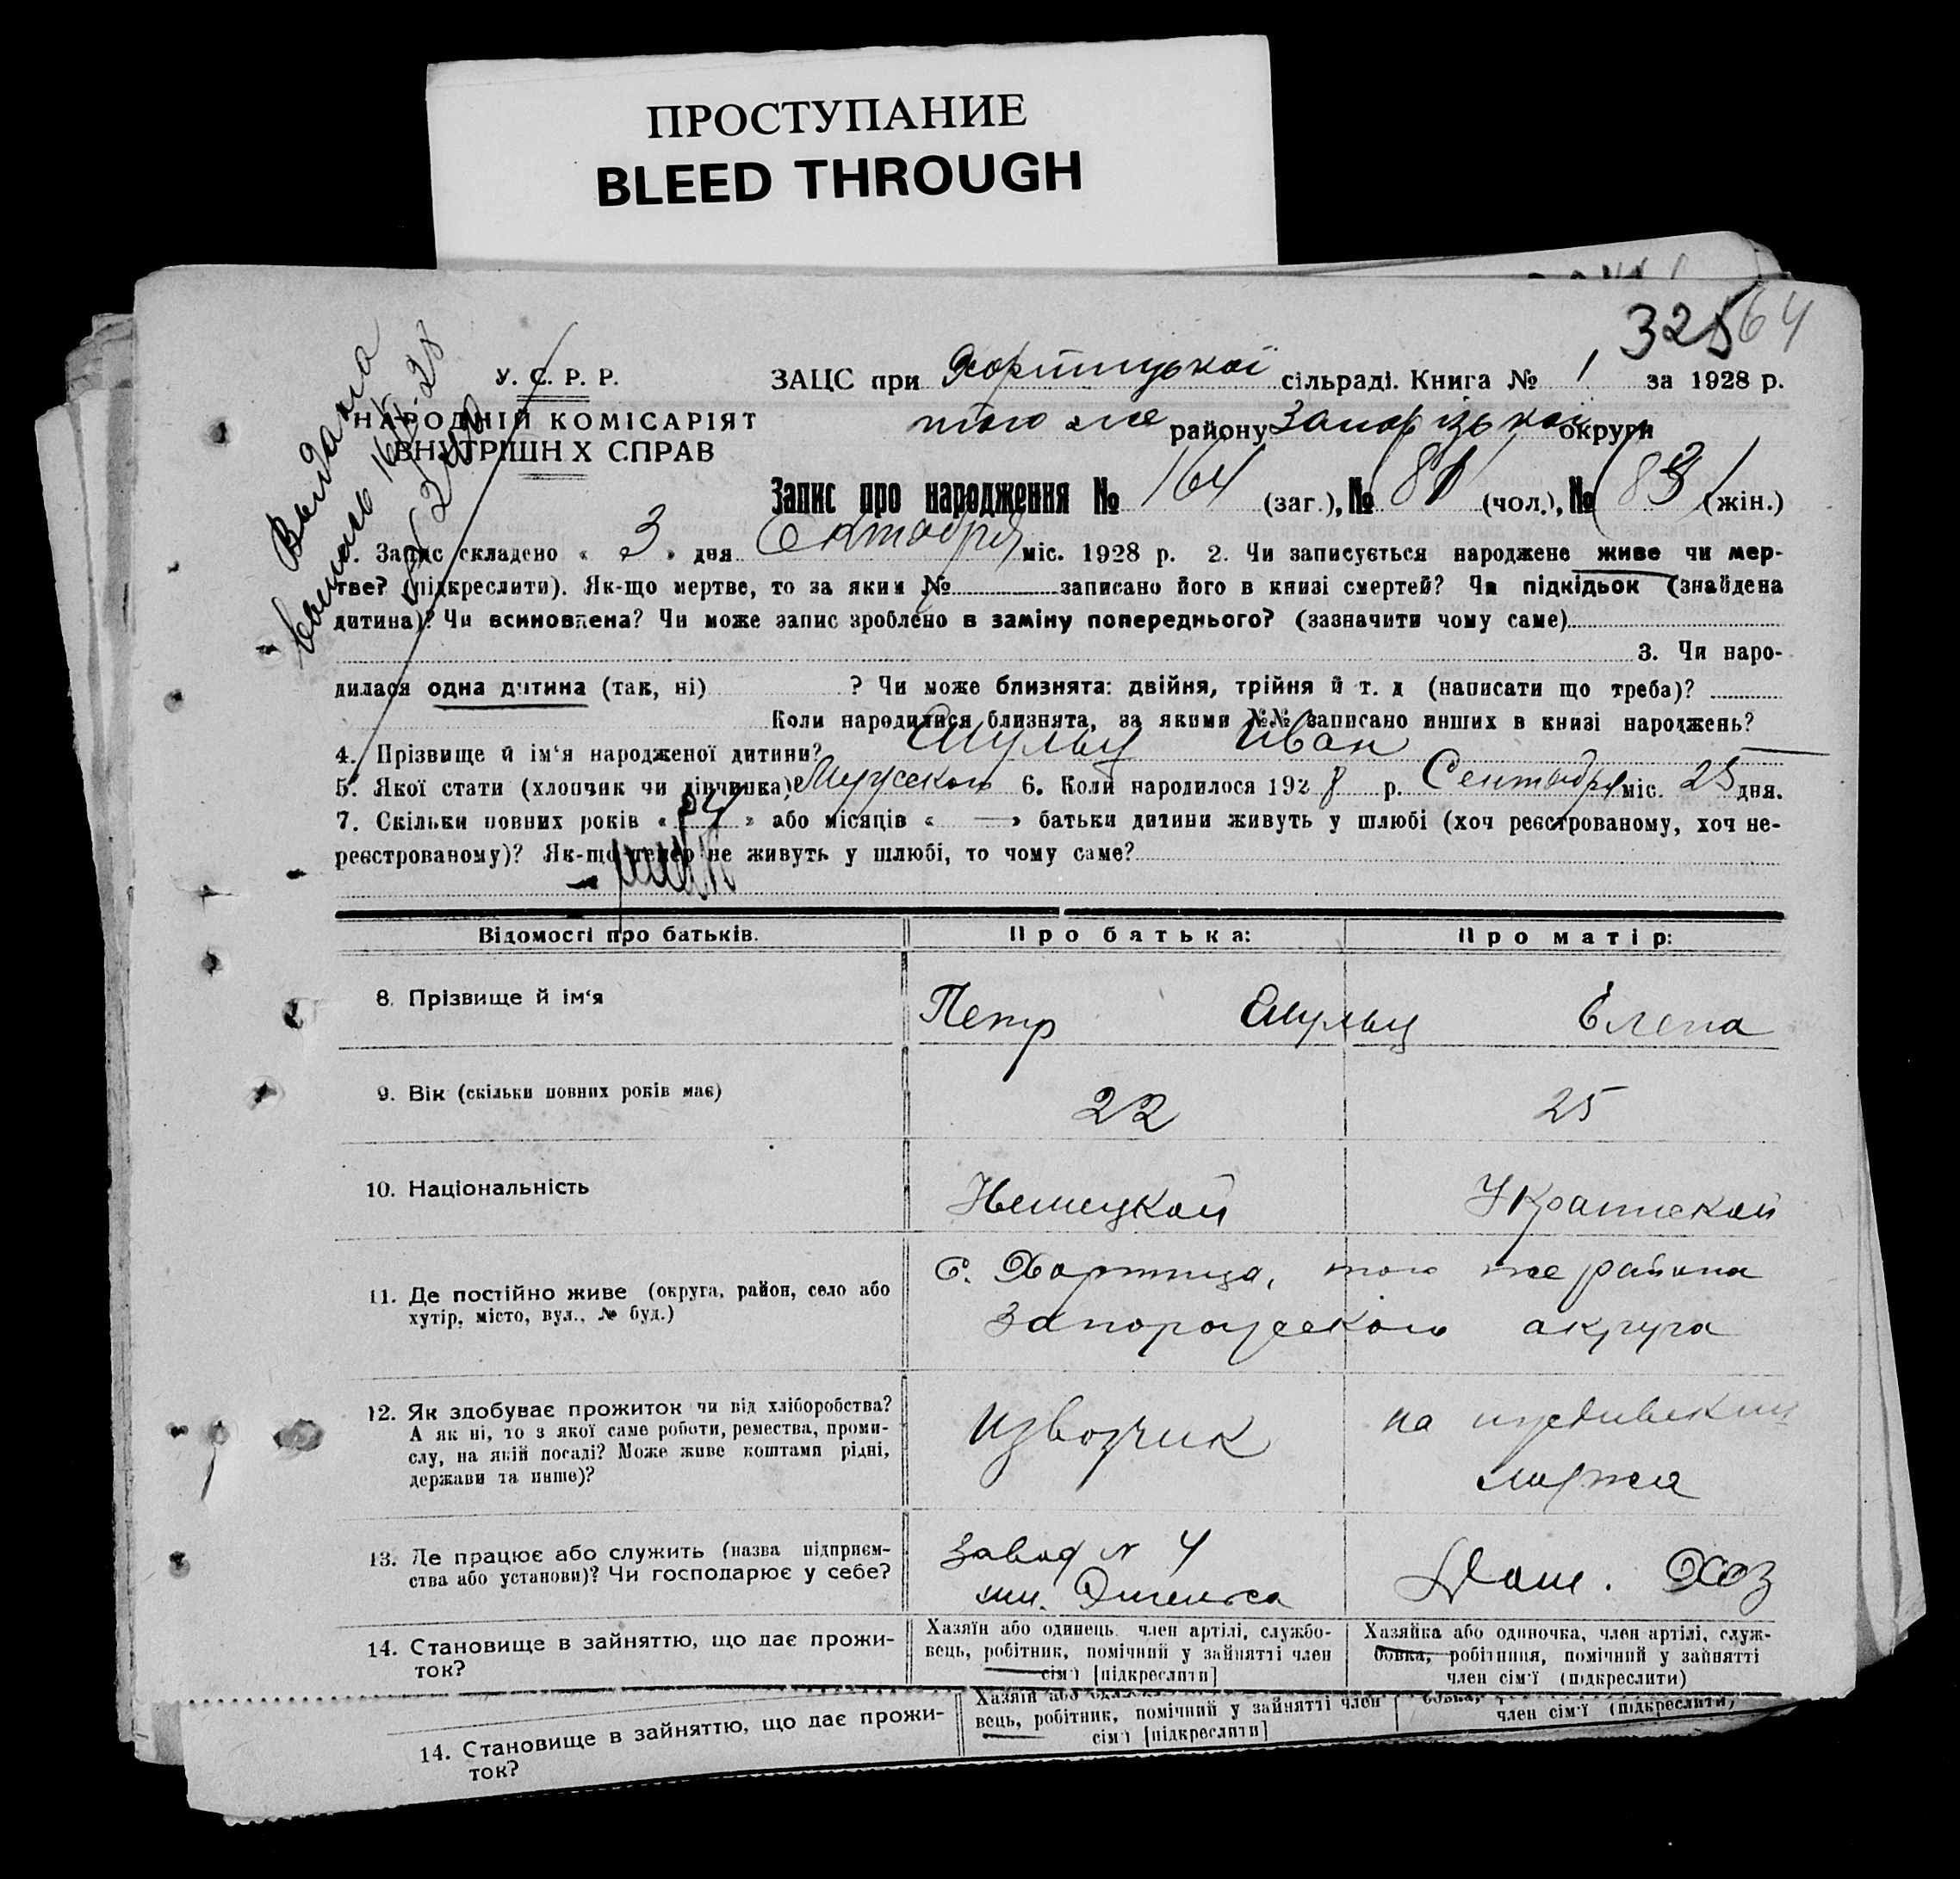 ПРОСТУПАНИЕ
BLEED THROUGH
32564
Выдана
У. С. Р. Р.
НАРОДНІЙ КОМІСАРІЯТ
ВНУТРІШН Х СПРАВ
ЗАЦС при Хортицької сільраді. Книга № 1 за 1928 р.
того же району Запорізької округи
Запис про народження № 164 (заг.), № 81 (чол.), № 83 (жін.)
1. Запис складено « 3 » дня Октября міс. 1928 р. 2. Чи записується народжене живе чи мер-
тве? (підкреслити). Як-що мертве, то за яким № записано його в книзі смертей? Чи підкідьок (знайдена
дитина)? Чи всиновлена? Чи може запис зроблено в заміну попереднього? (зазначити чому саме)
3. Чи наро-
дилася одна дитина (так, ні) ? Чи може близнята: двійня, трійня й т. д (написати що треба)?
Коли народилися близнята, за якими №№ записано инших в книзі народжень?
4. Прізвище й ім'я народженої дитини? Шульц Иван
5. Якої стати (хлопчик чи дівчинка)? Мужского 6. Коли народилося 1928 р. Сентября міс. 25 дня.
7. Скільки повних років « » або місяців « — » батьки дитини живуть у шлюбі (хоч реєстрованому, хоч не-
реєстрованому)? Як-що тепер не живуть у шлюбі, то чому саме?
Відомості про батьків. Про батька: Про матір:
8. Прізвище й ім'я Петр Шульц Елена
9. Вік (скільки повних років має) 22 25
10. Національність Немецкой Украинской
11. Де постійно живе (округа, район, село або
хутір, місто, вул., № буд.)
с. Хортица, того же района
Запорожского округа
12. Як здобуває прожиток чи від хліборобства?
А як ні, то з якої саме роботи, ремества, проми-
слу, на якій посаді? Може живе коштами рідні,
держави та инше)?
Извозчик
на иждивении
мужа
13. Де працює або служить (назва підприєм-
ства або установи)? Чи господарює у себе?
Завод № 4
им. Энгельса
Дом. Хоз
14. Становище в зайняттю, що дає прожи-
ток?
Хазяїн або одинець член артілі, службо-
вець, робітник, помічний у зайнятті член
сім'ї [підкреслити]
Хазяйка або одиночка, член артілі, служ-
бовка, робітниця, помічний у зайнятті
член сім'ї (підкреслити)
14. Становище в зайняттю, що дає прожи-
ток?
Хазяїн або
вець, робітник, помічний у зайнятті член
сім'ї [підкреслити]
член сім'ї (підкреслити)